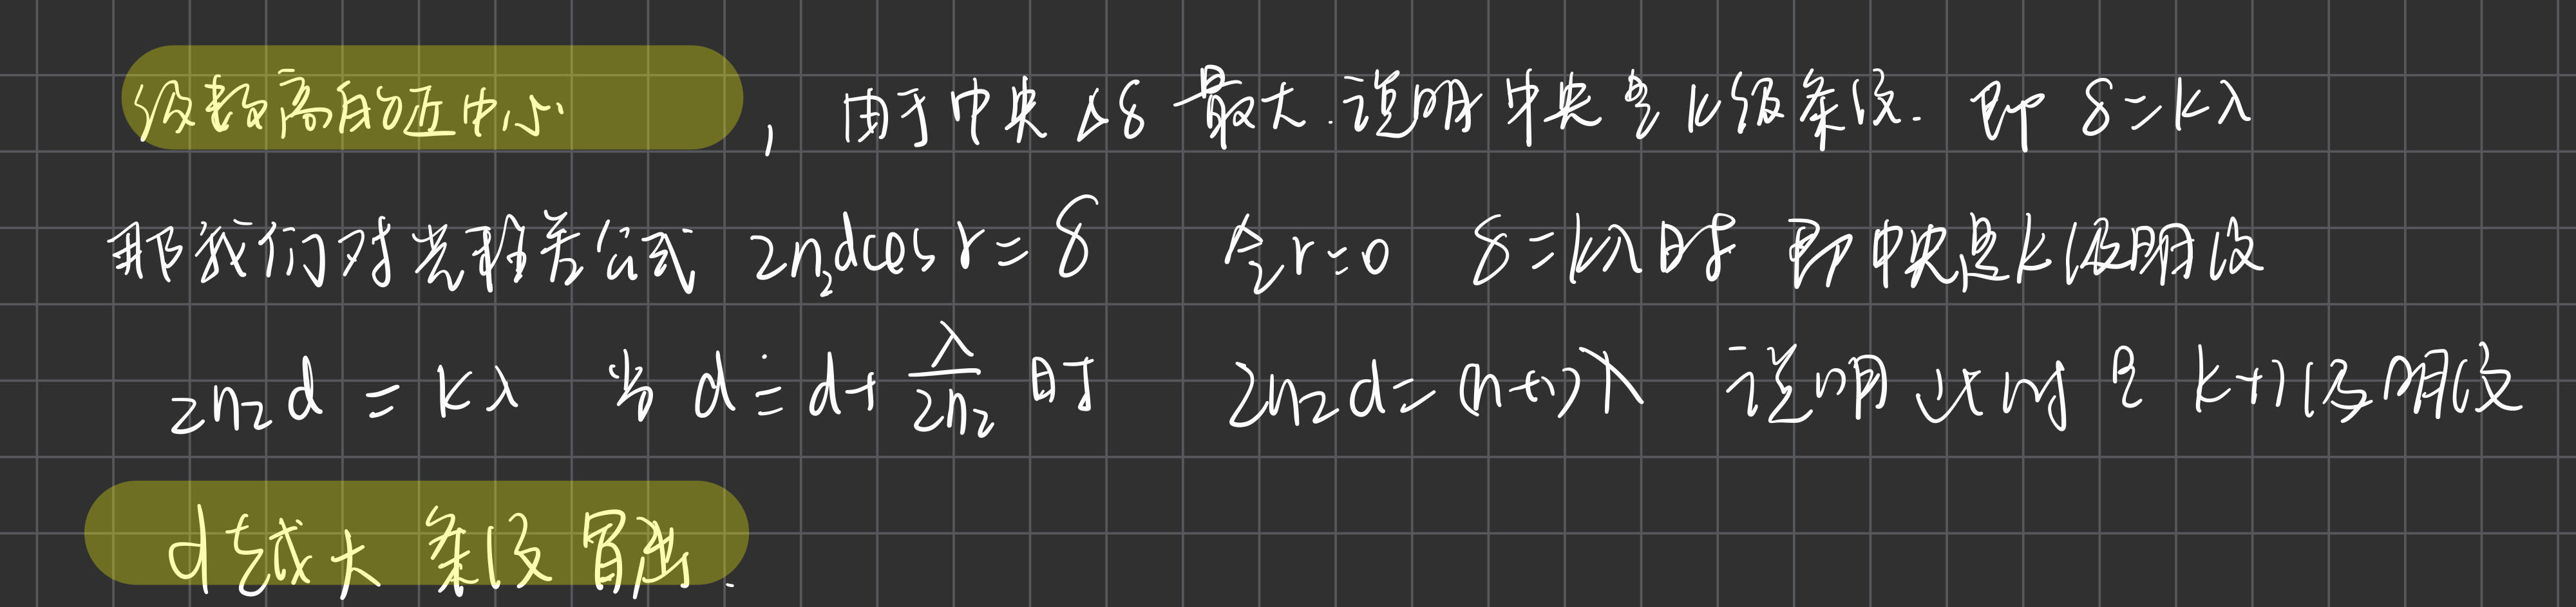 级数高的近中心，由于中央Δδ最大.说明中央是k级条纹.即 δ=kλ
那我们对光程差公式 2n₂dcos r=δ 令r=0 δ=kλ时 即中央是k级明纹
2n₂d=kλ 当 d=d+λ/2n₂ 时 2n₂d=(n+1)λ 说明此时是k+1级明纹
d越大 条纹冒出.